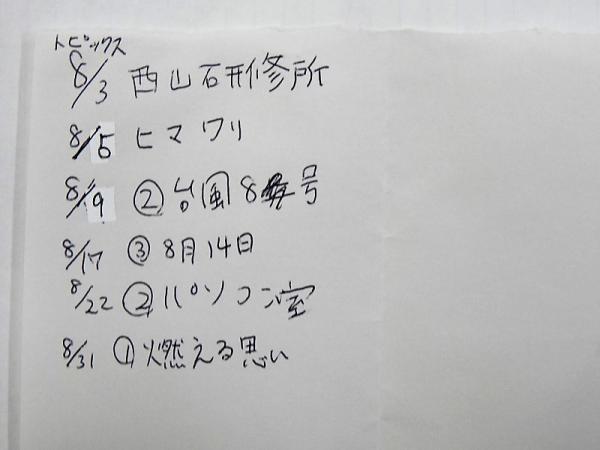 トピックス
8/3 西山研修所
8/5 ヒマワリ
8/9 ② 台風8号
8/17 ③ 8月14日
8/22 ② パソコン室
8/31 ① 燃える思い